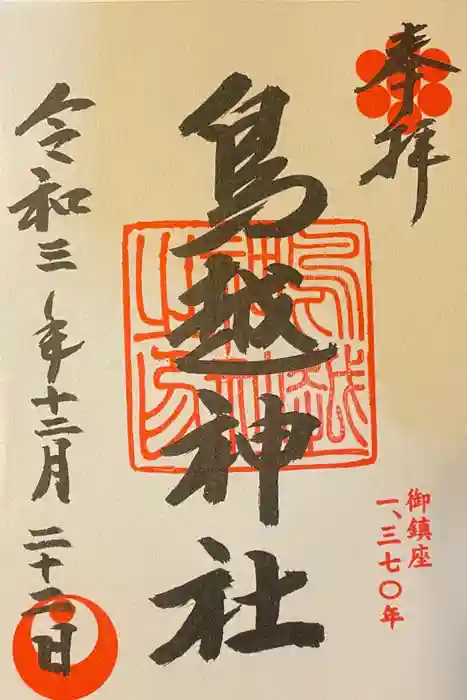 奉拝
御鎮座
一、三七〇年
鳥越神社
鳥越
神社
之印
令和三年十二月二十二日